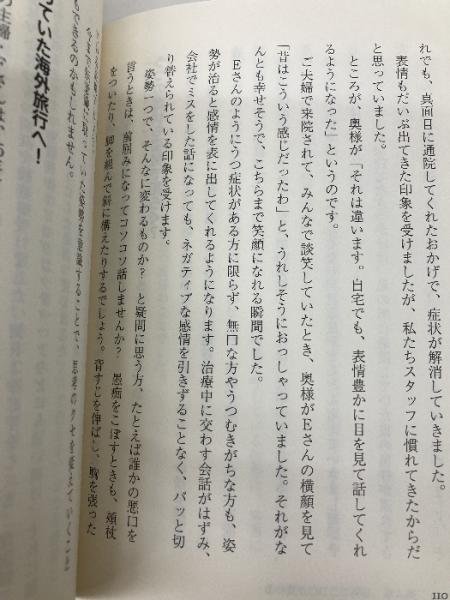 れでも、真面目に通院してくれたおかげで、症状が解消していきました。
表情もだいぶ出てきた印象を受けましたが、私たちスタッフに慣れてきたからだ
と思っていました。
ところが、奥様が「それは違います。自宅でも、表情豊かに目を見て話してくれ
るようになった」というのです。
ご夫婦で来院されて、みんなで談笑していたとき、奥様がEさんの横顔を見て
「昔はこういう感じだったわ」と、うれしそうにおっしゃっていました。それがな
んとも幸せそうで、こちらまで笑顔になれる瞬間でした。
Eさんのようにうつ症状がある方に限らず、無口な方やうつむきがちな方も、姿
勢が治ると感情を表に出してくれるようになります。治療中に交わす会話がはずみ、
会社でミスをした話になっても、ネガティブな感情を引きずることなく、パッと切
り替えられている印象を受けます。
姿勢一つで、そんなに変わるものか？ と疑問に思う方、たとえば誰かの悪口を
言うときは、前屈みになってコソコソ話しませんか？ 愚痴をこぼすときも、頬杖
をついたり、脚を組んで斜に構えたりするでしょう。背すじを伸ばし、胸を張った
ていた姿勢を意識することで、思考のクセを変えていくこと
もできるのかもしれません。
っていた海外旅行へ！
110